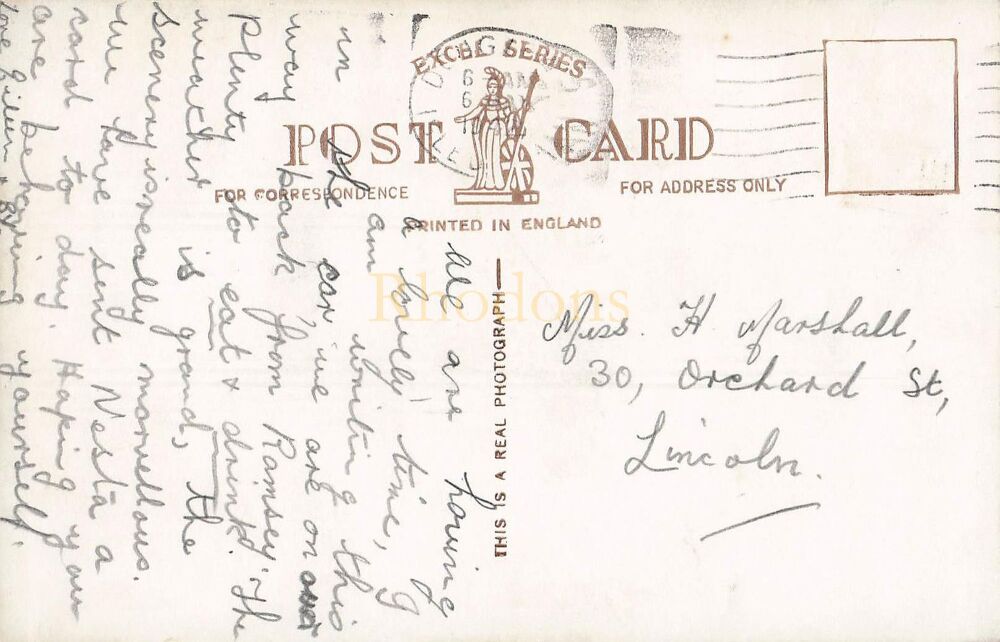 EXCEL SERIES
POST CARD
FOR CORRESPONDENCE
FOR ADDRESS ONLY
PRINTED IN ENGLAND
THIS IS A REAL PHOTOGRAPH
Rhodons
We are having
a lovely time, I
am writing this
in the car, we are on our
way back from Ramsey. The
plenty to eat & drink. The
weather is grand, the
scenery is really marvellous.
We have sent Nesta a
card to day. Hoping you
are behaving yourself.
Love Eileen &
Miss. H Marshall,
30, Orchard St,
Lincoln.